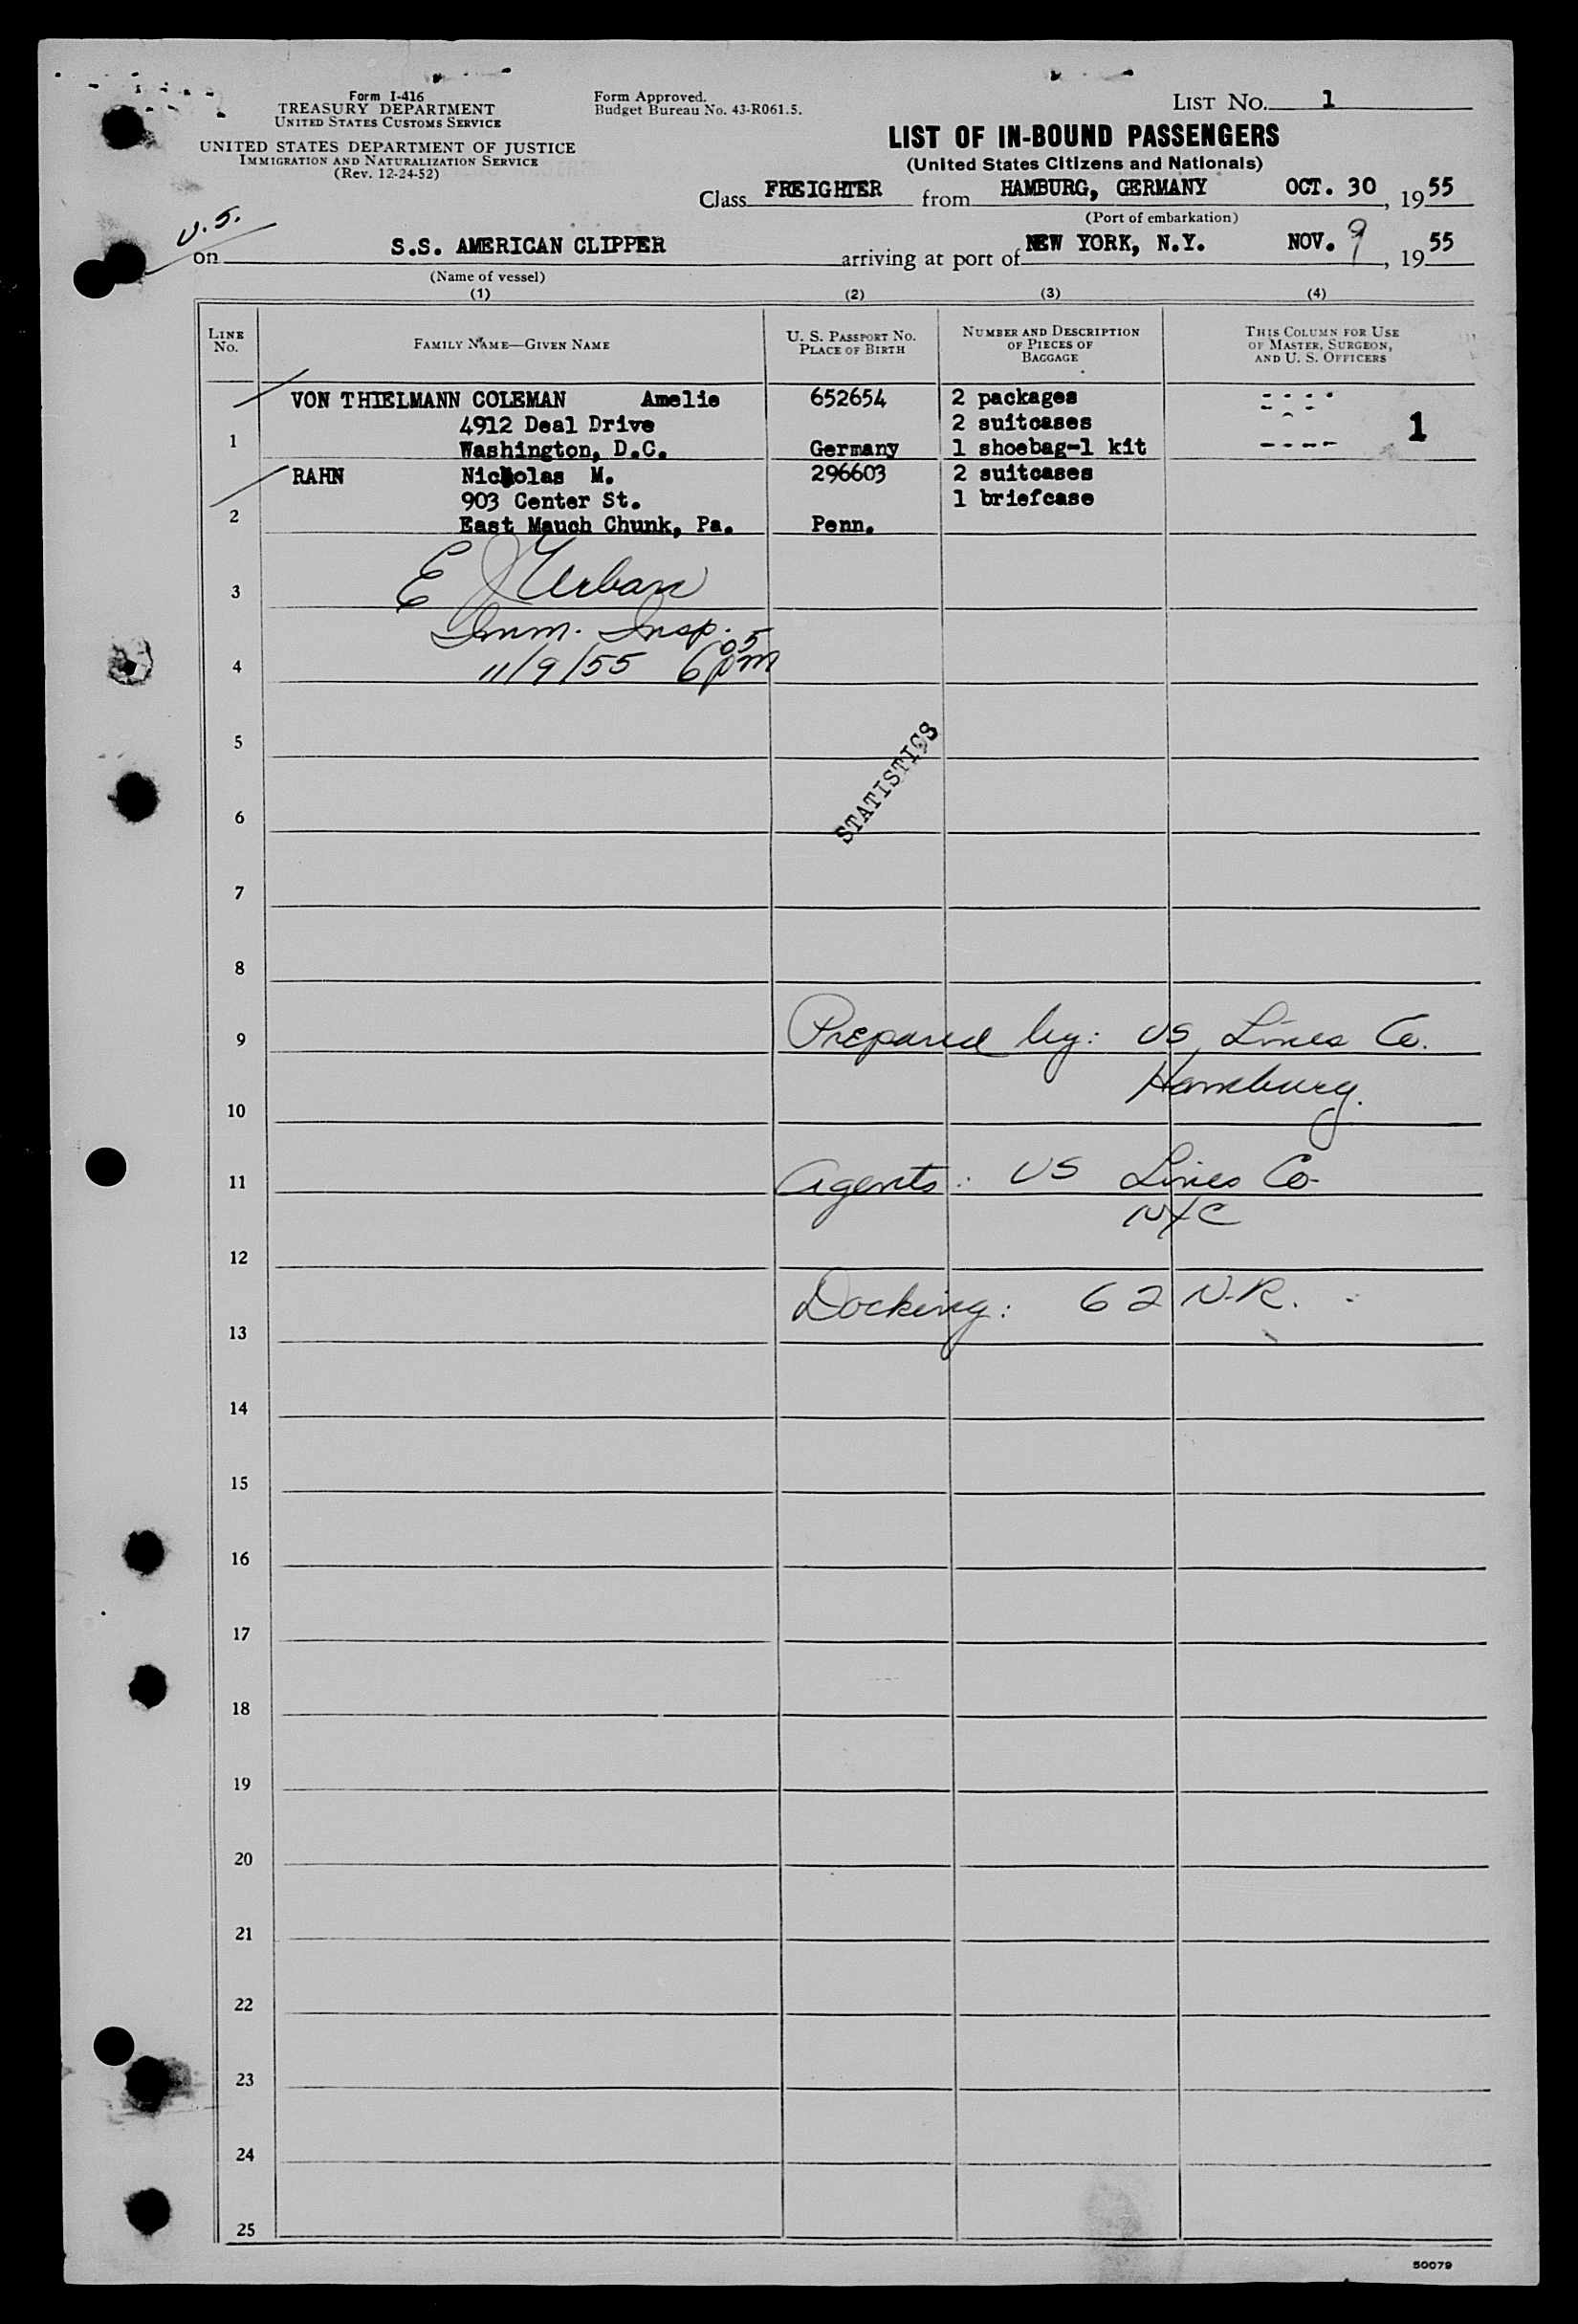 Form I-416
TREASURY DEPARTMENT
UNITED STATES CUSTOMS SERVICE
UNITED STATES DEPARTMENT OF JUSTICE
IMMIGRATION AND NATURALIZATION SERVICE
(Rev. 12-24-52)
Form Approved.
Budget Bureau No. 43-R061.5.
LIST No. 1
LIST OF IN-BOUND PASSENGERS
(United States Citizens and Nationals)
Class FREIGHTER from HAMBURG, GERMANY OCT. 30, 1955
(Port of embarkation)
U.S.
on S.S. AMERICAN CLIPPER arriving at port of NEW YORK, N.Y. NOV. 9, 1955
(Name of vessel)
(1) (2) (3) (4)
LINE No. FAMILY NAME—GIVEN NAME U. S. PASSPORT NO. PLACE OF BIRTH NUMBER AND DESCRIPTION OF PIECES OF BAGGAGE THIS COLUMN FOR USE OF MASTER, SURGEON, AND U. S. OFFICERS
VON THIELMANN COLEMAN Amelie 652654 2 packages
4912 Deal Drive 2 suitcases 1
1 Washington, D.C. Germany 1 shoebag-1 kit
RAHN Nicholas M. 296603 2 suitcases
903 Center St. 1 briefcase
2 East Mauch Chunk, Pa. Penn.
3 E J Urban
Imm. Insp.
4 11/9/55 6 05 pm
5
STATISTICS
6
7
8
9 Prepared by: US Lines Co.
10 Hamburg.
11 Agents: US Lines Co
NYC
12
13 Docking: 62 N.R.
14
15
16
17
18
19
20
21
22
23
24
25
50079